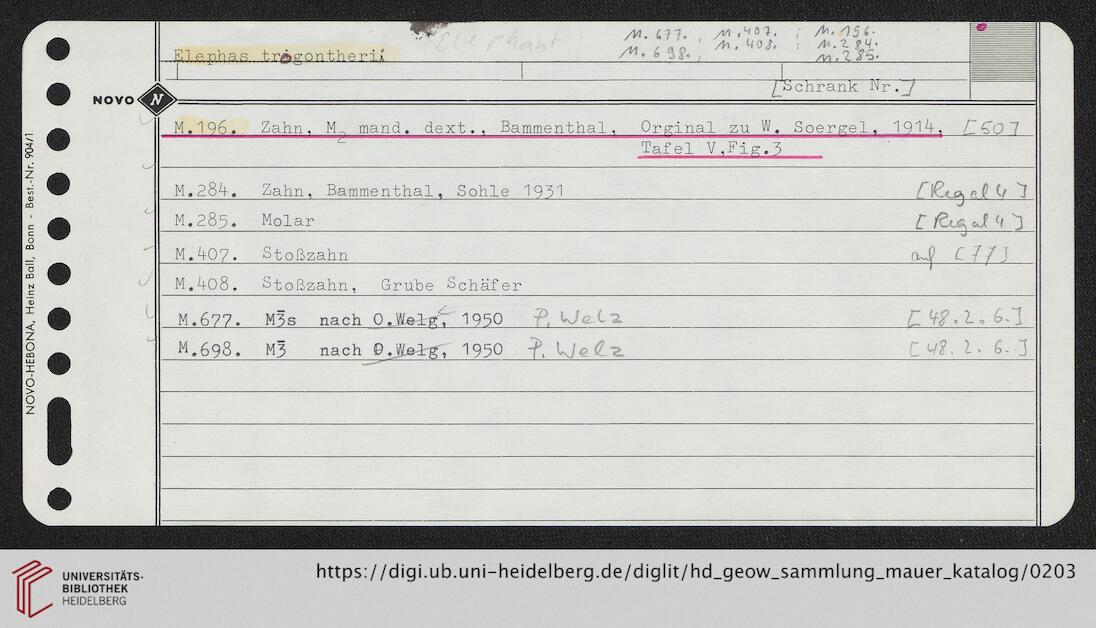 Elephant M. 677. , M. 407. ; M. 196.
M. 698. , M. 408. ; M. 284.
M. 285.
Elephas trogontherii
[Schrank Nr.]
NOVO N
M.196. Zahn, M2 mand. dext., Bammenthal, Orginal zu W. Soergel, 1914, [50]
Tafel V,Fig.3
M.284. Zahn, Bammenthal, Sohle 1931 [Regal 4]
M.285. Molar [Regal 4]
M.407. Stoßzahn auf [77]
M.408. Stoßzahn, Grube Schäfer
M.677. M3s nach O.Welg, 1950 P. Welz [48.2.6.]
M.698. M3 nach O.Welg, 1950 P. Welz [48.2.6.]
NOVO-HEBONA, Heinz Ball, Bonn - Best.-Nr. 904/1
UNIVERSITÄTS-
BIBLIOTHEK
HEIDELBERG
https://digi.ub.uni-heidelberg.de/diglit/hd_geow_sammlung_mauer_katalog/0203